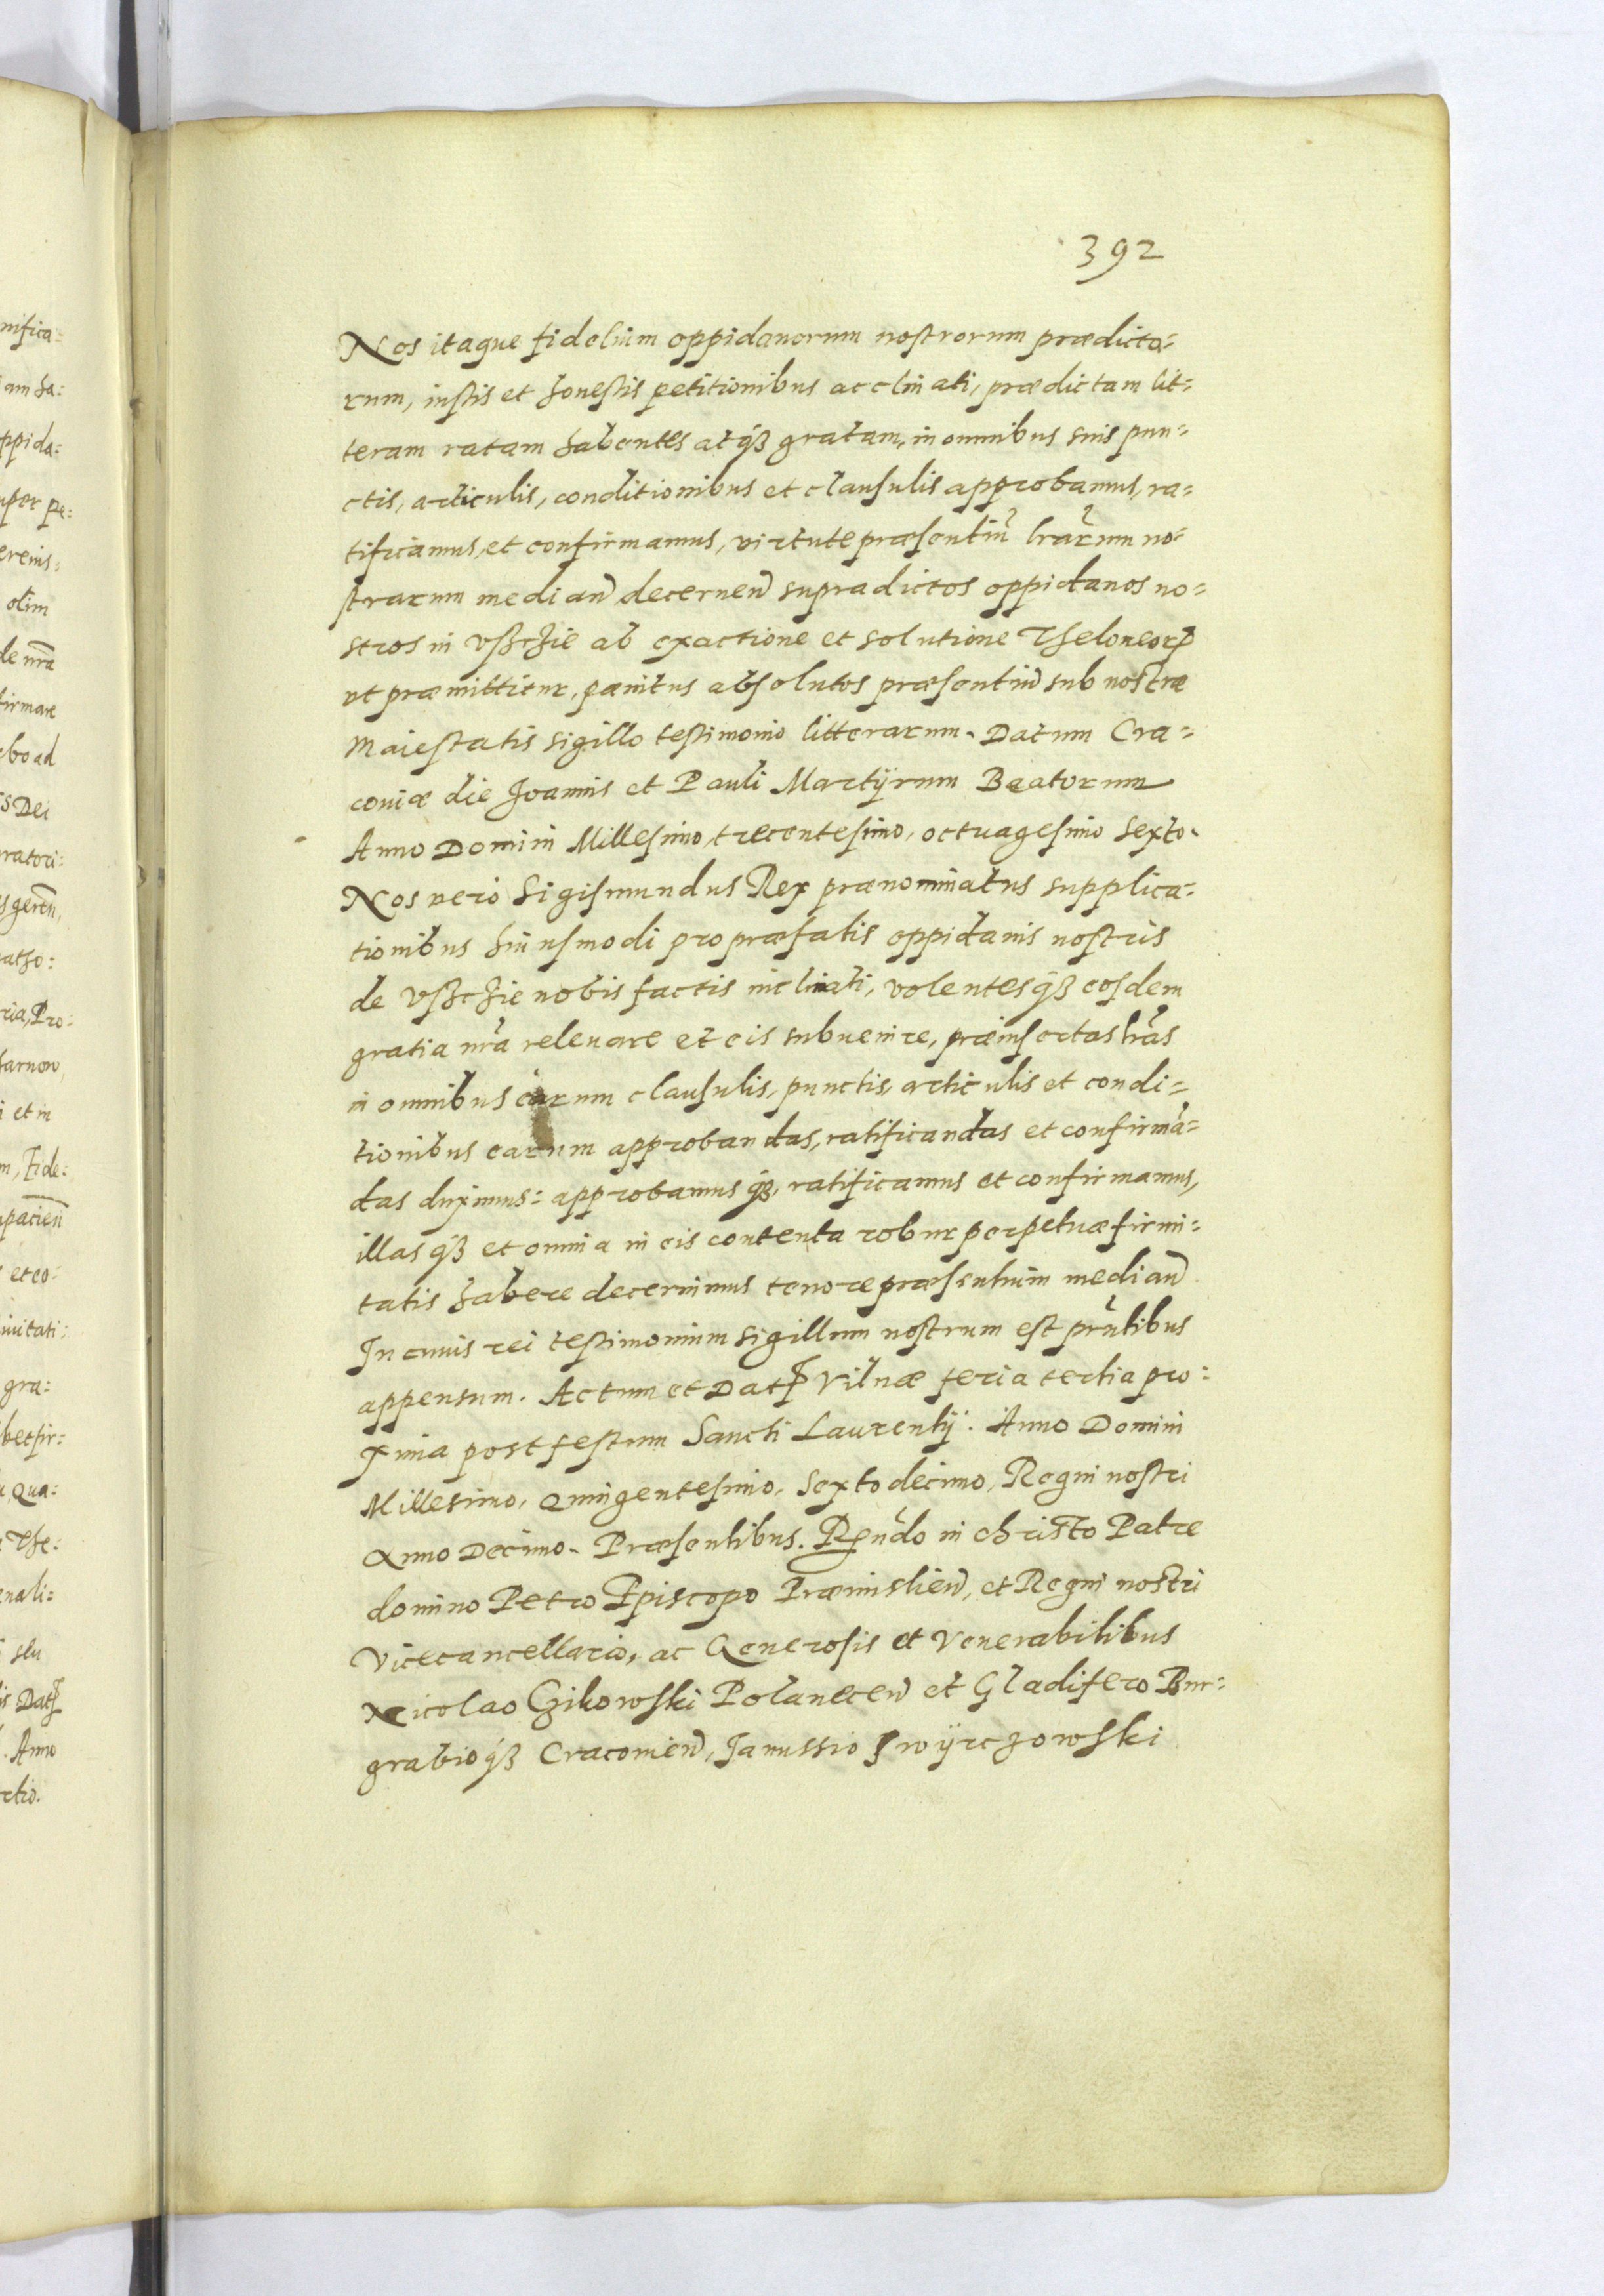 392
Nos itaque fidelium oppidanorum nostrorum prædicto=
rum, iustis et honestis petitionibus acclinati, prædictam lit=
teram ratam habentes atq́ꝫ gratam, in omnibus suis pun=
ctis, articulis, conditionibus et clausulis approbamus, ra=
tificamus, et confirmamus, virtute præsentiu᷃ lr᷃arum no=
strarum median̄ decernen̄ supradictos oppidanos no=
stros in Vßczie ab exactione et solutione Theloneorꝝ
vt præmittitur, pænitus absolutos præsentiu᷃ sub nostræ
Maiestatis sigillo testimonio litterarum. Datum Cra=
coviæ die Joannis et Pauli Martÿrum Beatorum
Anno Domini Millesimo, trecentesimo, octuagesimo Sexto.
Nos vero Sigismundus Rex prænominatus supplica=
tionibus huiusmodi pro præfatis oppidanis nostris
de Vßczie nobis factis inclinati, volentesq́ꝫ eosdem
gratia nr᷃a releuare et eis subuenire, præinsertas lr᷃as
in omnibus earum clausulis, punctis, articulis et condi=
tionibus earum approbandas, ratificandas et confirma᷃=
das duximus: approbamus q́ꝫ, ratificamus et confirmamus,
illas q́ꝫ et omnia in eis contenta robur perpetuæ firmi=
tatis habere decernimus tenore præsentium median̄
In cuius rei testimonium sigillum nostrum est pn̄tibus
appensum. Actum et Datꝝ Vilnæ feria tertia pro=
xima post festum Sancti Laurentij. Anno Domini
Millesimo, Quingentesimo, Sexto decimo, Regni nostri
Anno Decimo. Præsentibus. Rn̄do in christo Patre
domino Petro Episcopo Præmislien̄, et Regni nostri
Vicecancellario, ac Generosis et Venerabilibus
Nicolao Czikowski Polanecen̄ et Gladifero Bur=
grabioq́ꝫ Cracovien̄, Janussio Swÿrczowski